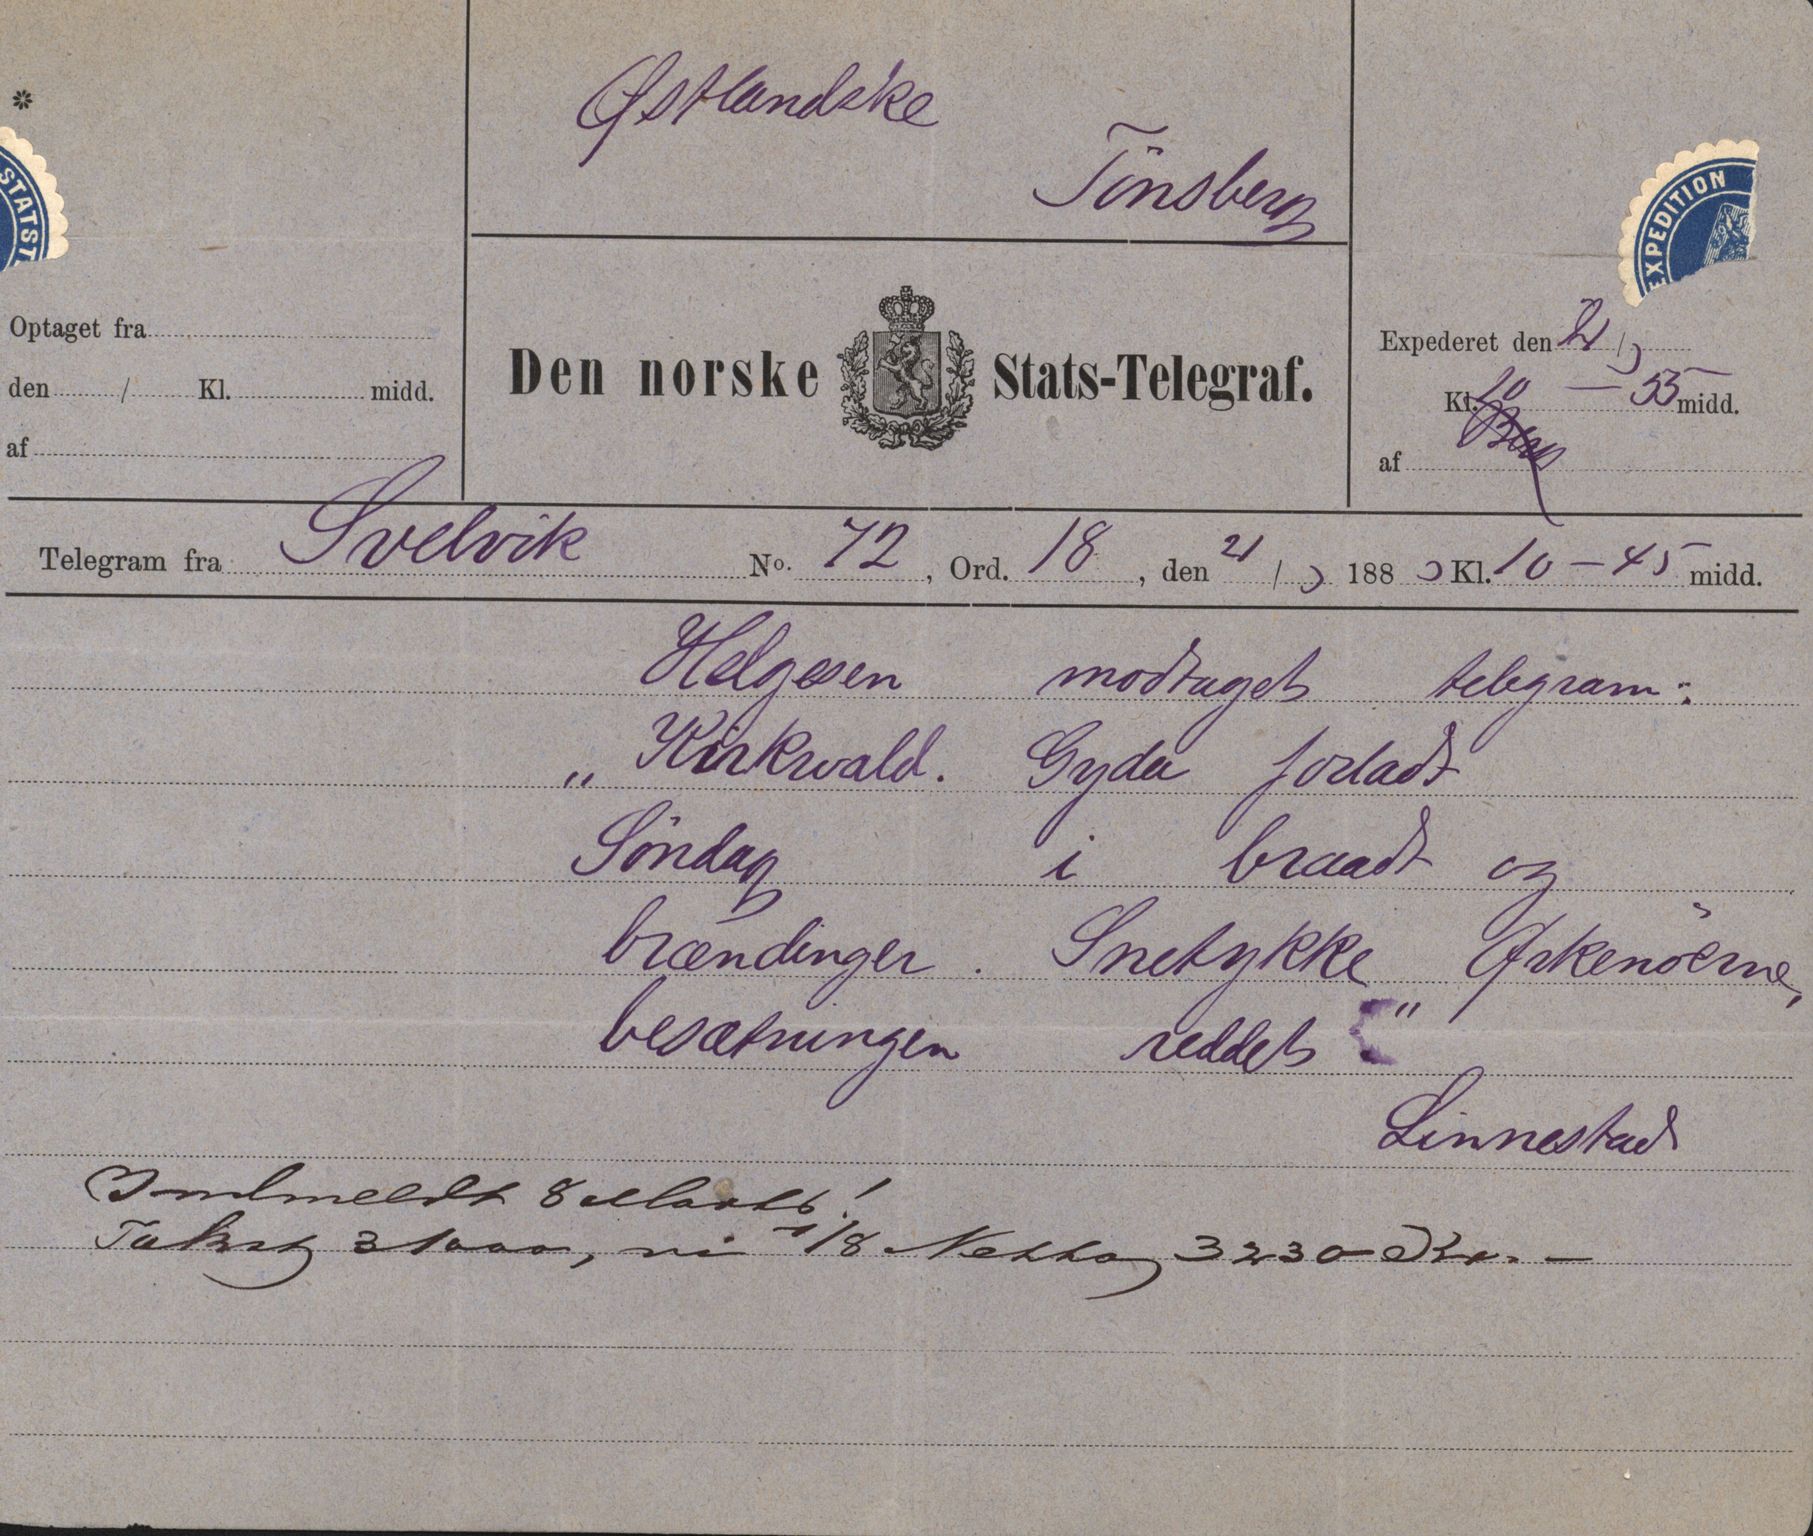 Østlandske
Tönsberg
STATST
EXPEDITION
Optaget fra
den / Kl. midd.
af
Den norske Stats-Telegraf.
Expederet den 21/3
Kl. 10 — 55 midd.
af Berg
Telegram fra Svelvik No. 72, Ord. 18, den 21/3 1883 Kl. 10 — 45 midd.
Helgesen modtaget telegram:
„Kirkwald. Gyda forladt
Söndag i braadt og
brændinger. Snetykke Ørkenöerne,
besætningen reddet"
Linnestad
Indmeldt 8 Marts!
Takst 31000, vi 1/8 Netto 3230 Kr. —